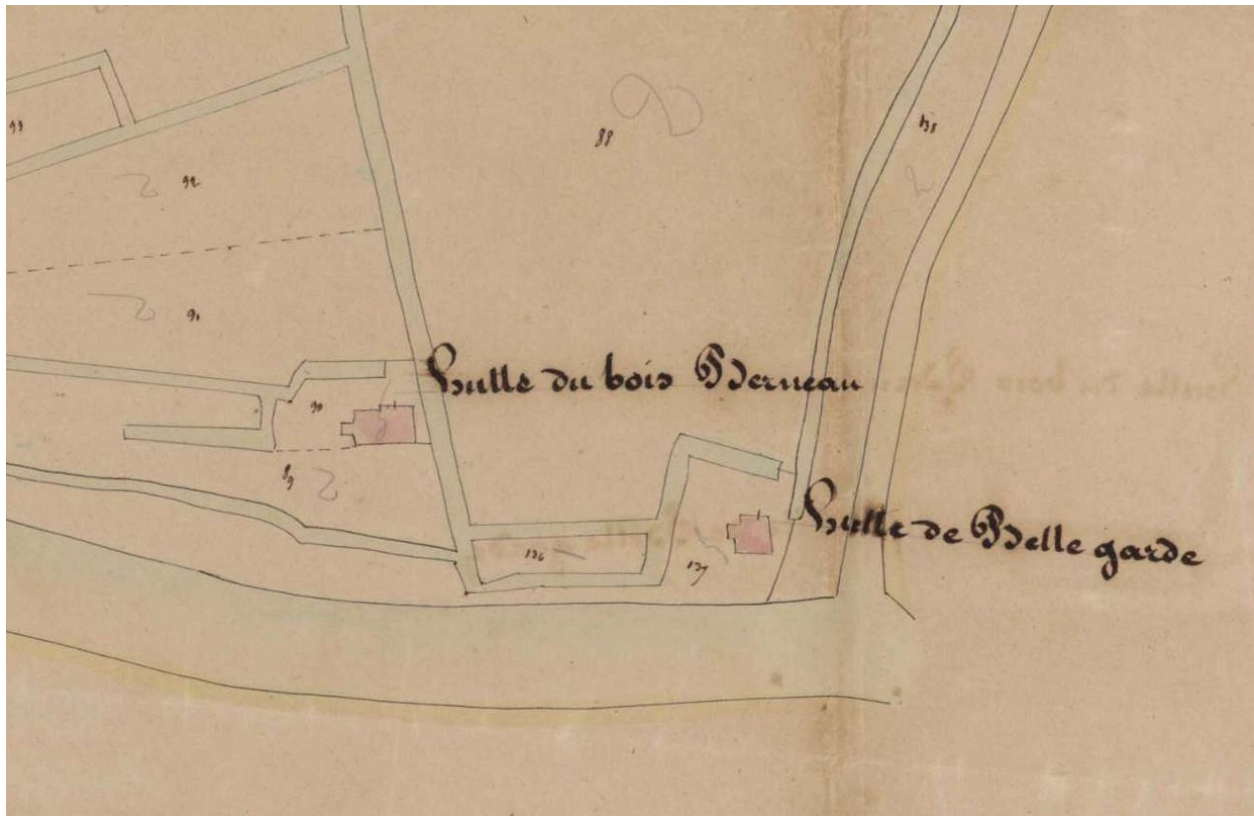 99
88
134
92
91
hutte du bois Berneau
90
89
hutte de Belle garde
136
137